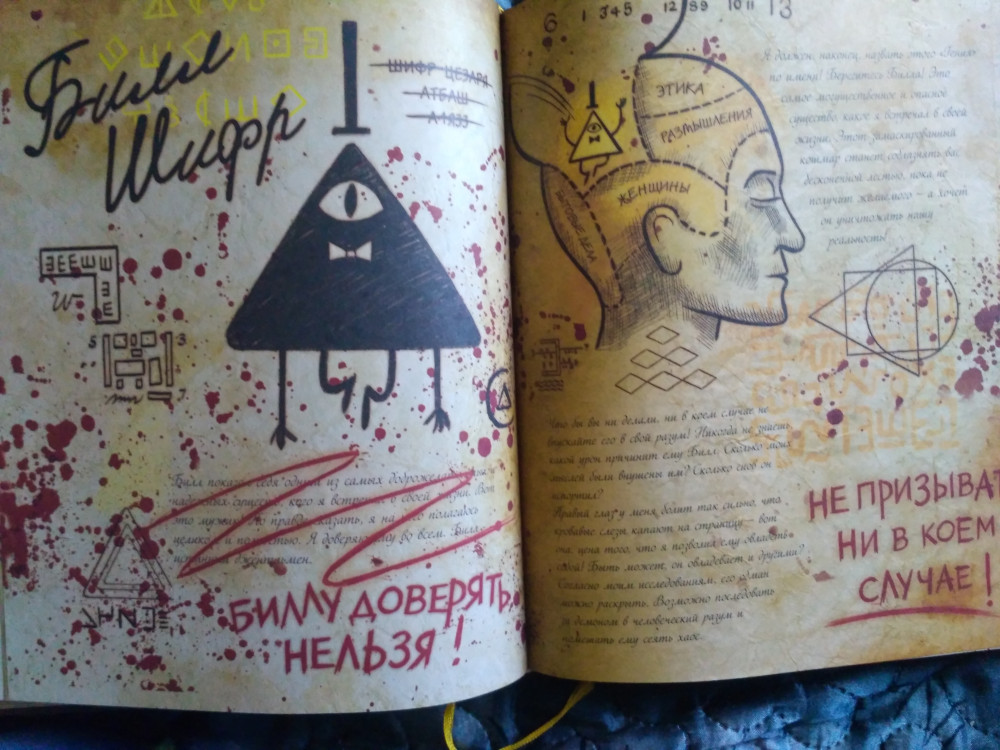 Билл
Шифр
ШИФР ЦЕЗАРЯ
АТБАШ
А1Я33
5
3
7
"Билл показал себя одним из самых
надежных существ, кто я встречал в своей жизни. Вот
это мужик! По правде сказать, я на него полагаюсь
целиком и полностью. Я доверяю ему во всем. Билл
джентльмен.
БИЛЛУ ДОВЕРЯТЬ
НЕЛЬЗЯ!
6 1 345 12 89 10 11 13
ЭТИКА
РАЗМЫШЛЕНИЯ
ЖЕНЩИНЫ
ДЕЛА
Я должен, наконец, назвать этого
по имени! Берегитесь Билла! Это
самое могущественное и опасное
существо, какое я встречал в своей
жизни. Этот замаскированный
кошмар станет соблазнять вас
бесконечной лестью, пока не
получит желаемого – а хочет
он уничтожить нашу
реальность!
Что бы вы ни делали, ни в коем случае не
впускайте его в свой разум! Никогда не знаешь,
какой урон причинит ему Билл. Сколько моих
мыслей были внушены им? Сколько снов он
испортил?
Правый глаз у меня болит так сильно, что
кровавые слезы капают на страницу – вот
она цена того, что я позволил ему овладеть
собой! Быть может, он овладевает и другими?
Согласно моим исследованиям, его обман
можно раскрыть. Возможно последовать
за демоном в человеческий разум и
помешать ему сеять хаос.
НЕ ПРИЗЫВАТ
НИ В КОЕМ
СЛУЧАЕ!